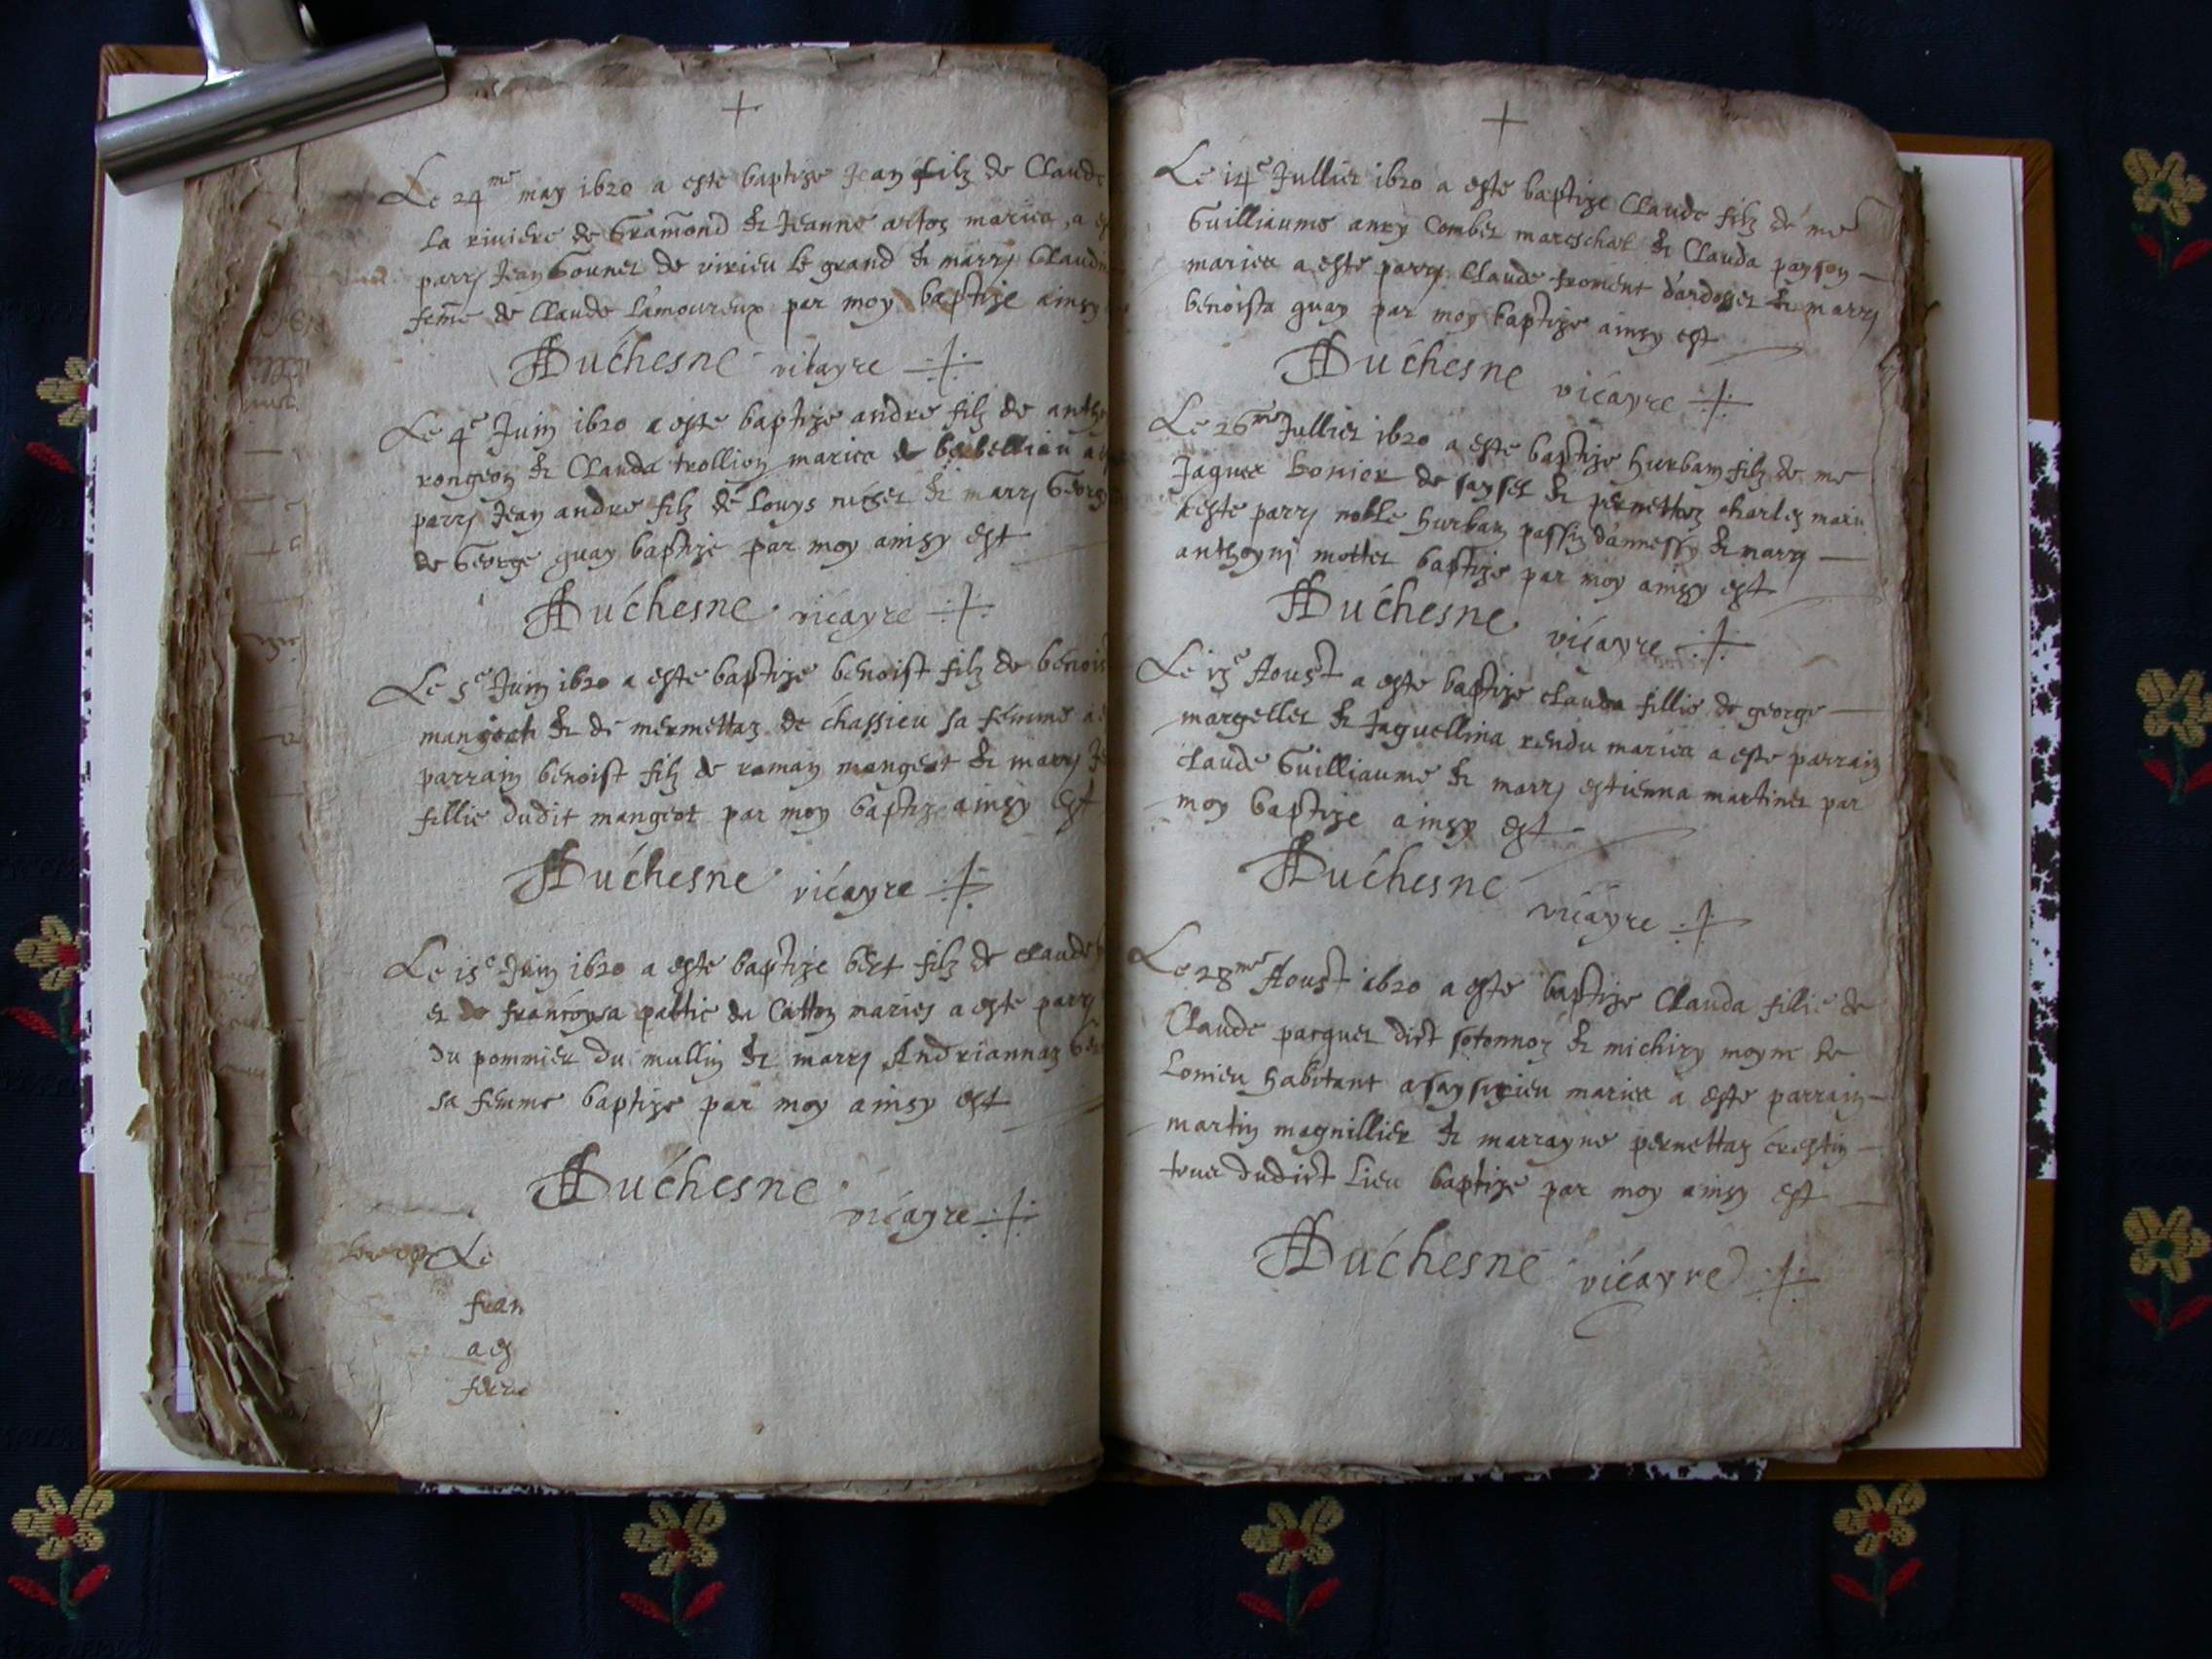 Le 24me may 1620 a este baptize Jean filz de Claude
la riviere de Gramond & Jeanne artoz mariea, a
parrj Jean Gounet de virieu le grand & marrj Claud
feme de Claude Lamoureux par moy baptize ainsy
Duchesne vicayre
Le 4e Juin 1620 a este baptize andre filz de antho
rongeon & Clauda trollion mariea
parrj Jean andre filz de Louys & marrj George
de George guay baptize par moy ainsy est
Duchesne vicayre
Le 5e Juin 1620 a este baptize benoist filz de benois
& de mermettaz de chassieu sa femme a
parrain benoist filz de roman mangeot & marrj Je
fillie dudit mangeot par moy baptize ainsy est
Duchesne vicayre
Le 15e Juin 1620 a este baptize filz de claude
et de francoysa du Catton maries a este parrj
du pommier du mullin & marrj Andriannaz
sa femme baptize par moy ainsy est
Duchesne
vicayre
Le
fran
a es
Le 14e Julliet 1620 a este baptize Claude filz de me
Guilliaume anry Combet mareschal & Clauda payson
mariea a este parrj Claude froment dardosset & marrj
benoista guay par moy baptize ainsy est
Duchesne vicayre
Le 26me Julliet 1620 a este baptize hurban filz de me
Jaques bonier de saysel & pernettaz charles marie
a este parrj noble hurban passin dannessy & marrj
anthoynj mottet baptize par moy ainsy est
Duchesne vicayre
Le 15e Aoust a este baptize clauda fillie de george
margellet & Jaquellina rendu mariea a este parrain
claude Guilliaume & marrj estienna martinet par
moy baptize ainsy est
Duchesne
vicayre
Le 28me Aoust 1620 a este baptize Clauda fillie de
Claude parquet dict sotonnoz & moyne de
Lomieu habitant mariea a este parrain
martin magnillier & marrayne pernettaz crestin
dudict Lieu baptize par moy ainsy est
Duchesne vicayre